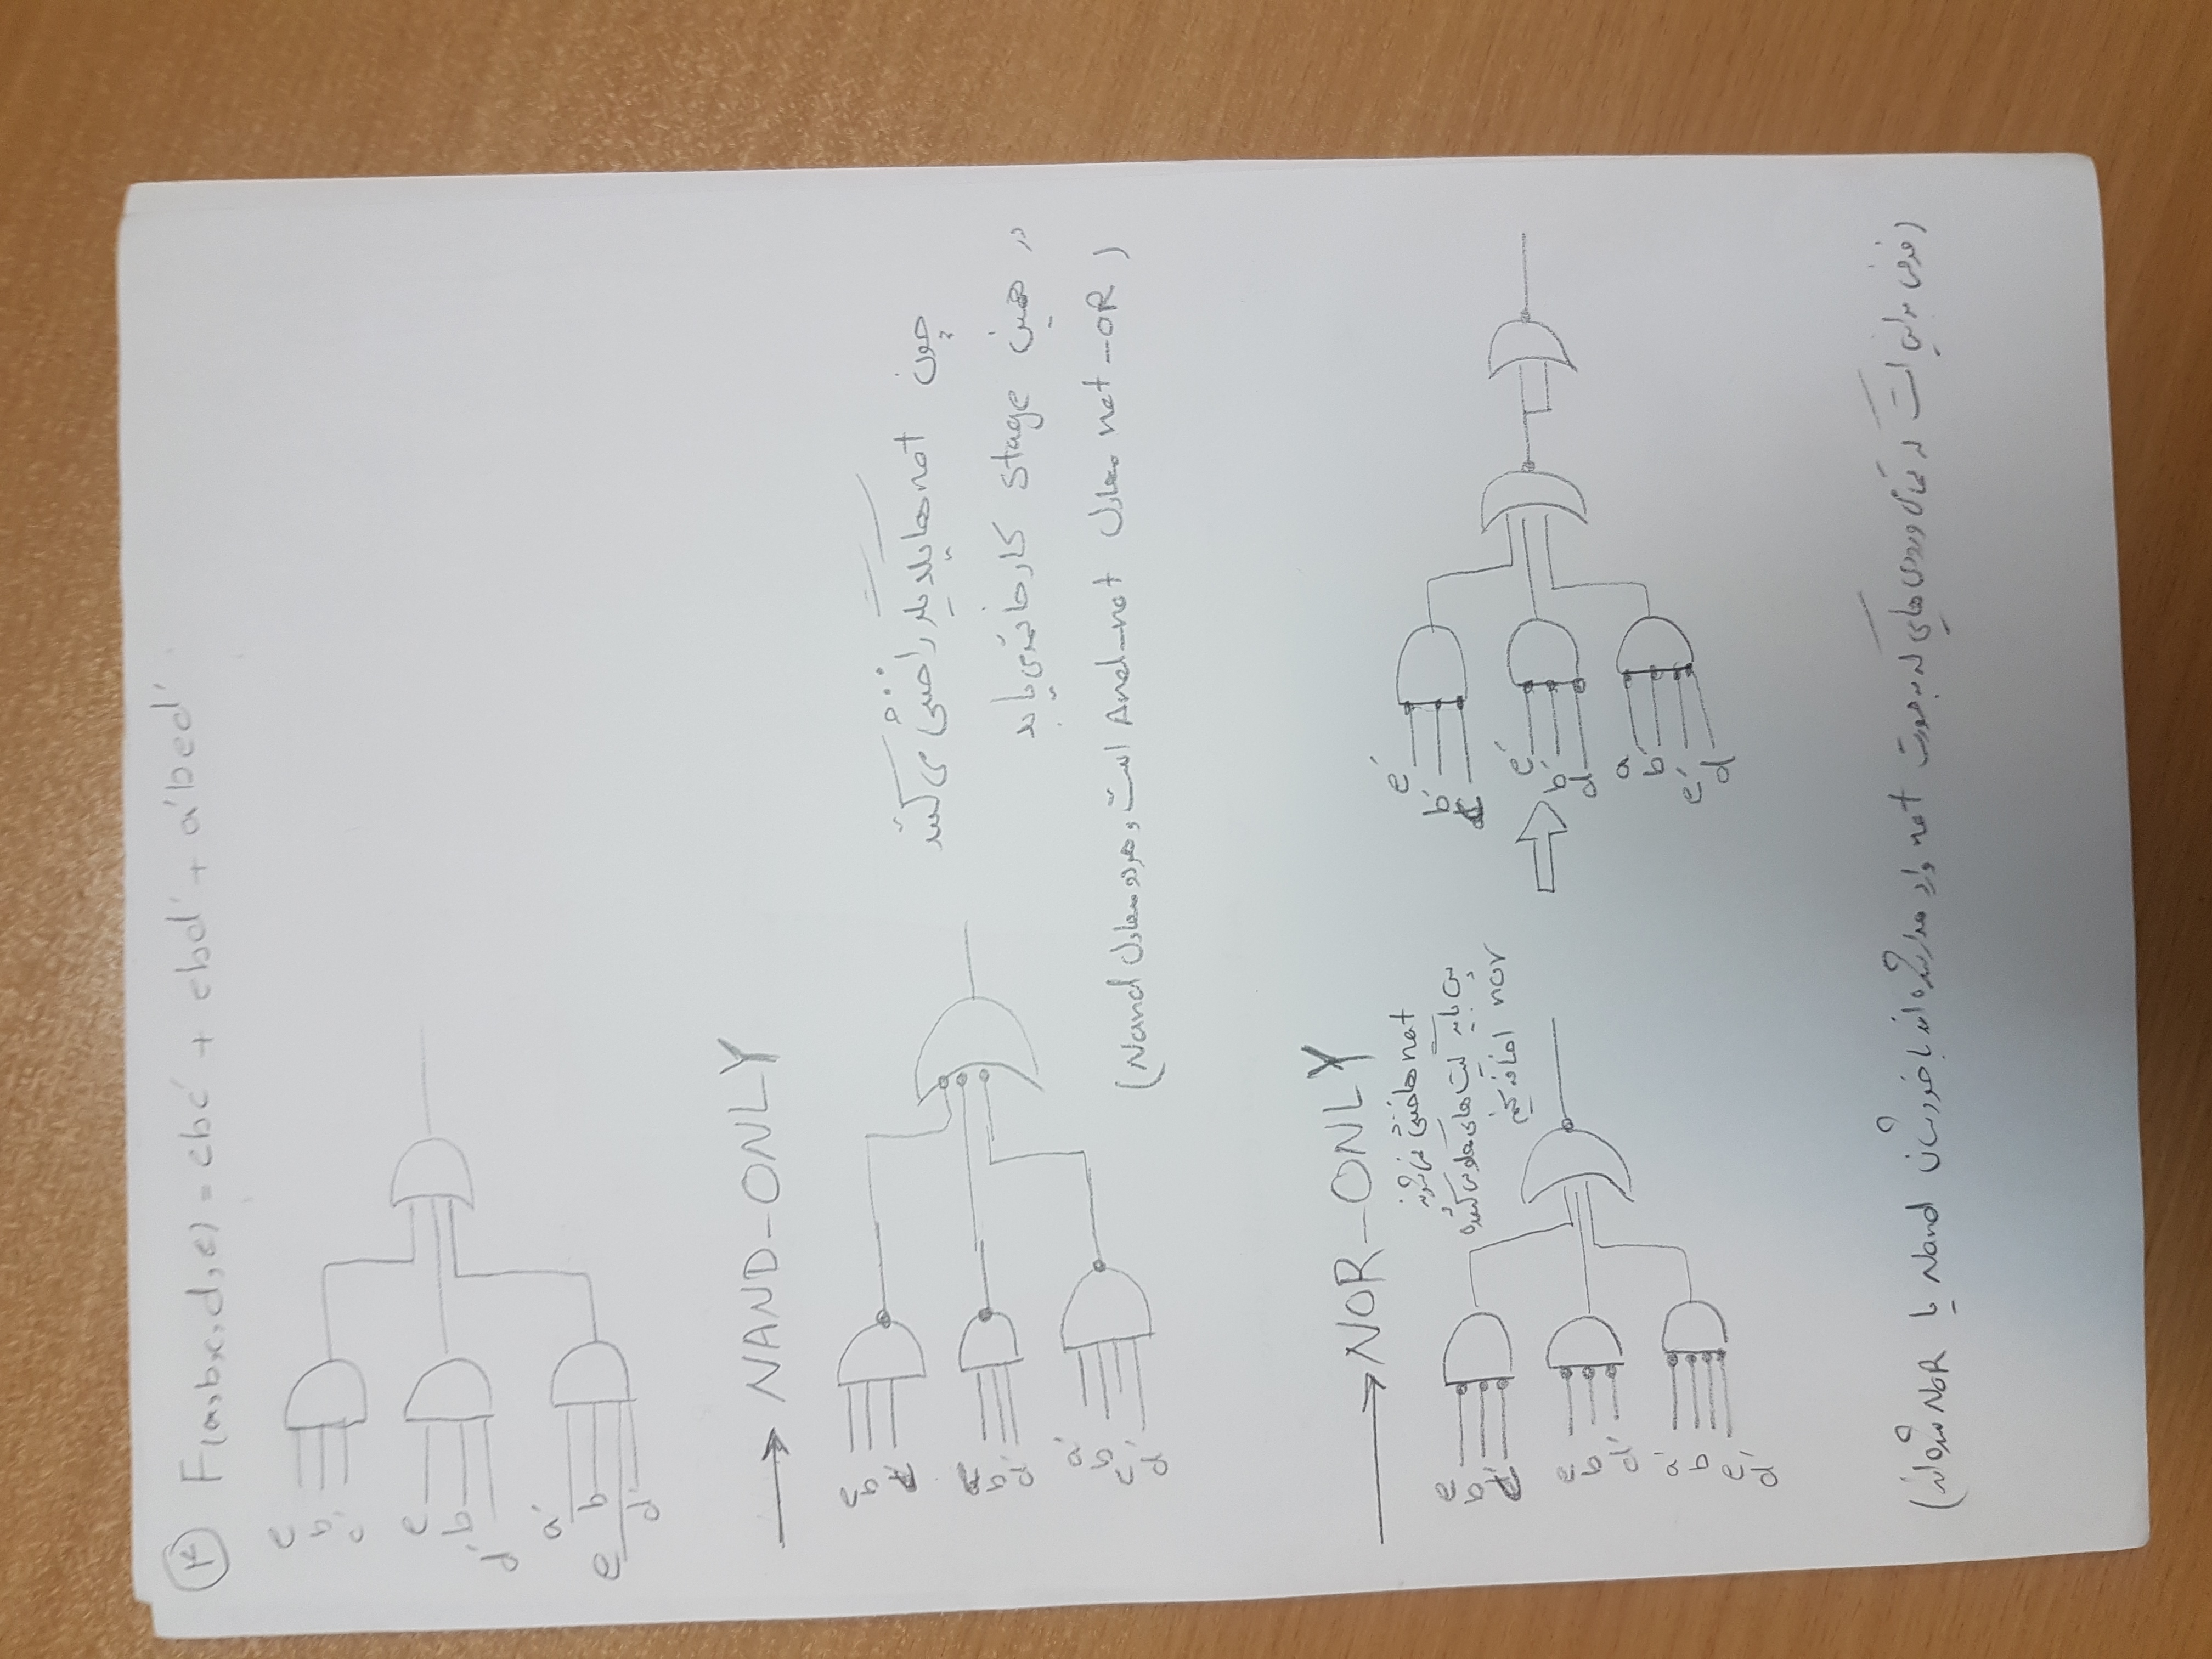 ۴ F(a,b,c,d,e) = ebc' + ebd' + a'bed'
e
b
c'
e
b
d'
a'
b
e
d'
→ NAND-ONLY
e
b
b
d'
a'
b
e
d'
چون not ها یکدیگر را خنثی می‌کنند
در همین stage کار خاتمه می‌یابد
(not-OR معادل And-not است و هر دو معادل Nand)
→ NOR-ONLY
not ها خنثی نمی‌شوند
پس باید گیت های معکوس کننده
nor اضافه کنیم
e
b
c'
e
b
d'
a'
b
e
d'
e'
b'
c
e'
b'
d
a
b'
e'
d
(فرض بر این است که تمامی ورودی هایی که به صورت not وارد مدار شده اند با خودشان Nand یا NOR شده اند)